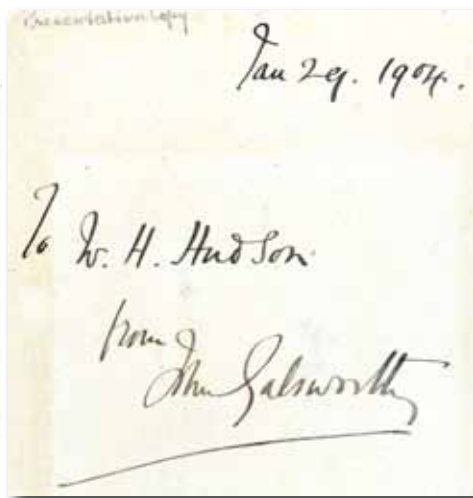 Presentation Copy
Jan 29. 1904.
To W. H. Hudson
from
John Galsworthy